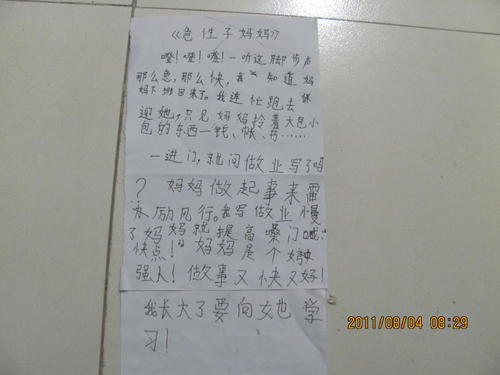 《急性子妈妈》
噔！噔！噔！一听这脚步声
那么急，那么快，我 知道妈
妈下班回来了。我连忙跑去
迎她，只见妈妈拎着大包小
包的东西一钱、帐、书……
一进门，就问做业写了吗
？妈妈做起事来雷
厉风行。我写做业慢
了妈妈就提高嗓门喊：
快点！”妈妈是个
强人！做事又快又好！
我长大了要向她学
习！
2011/08/04 08:29